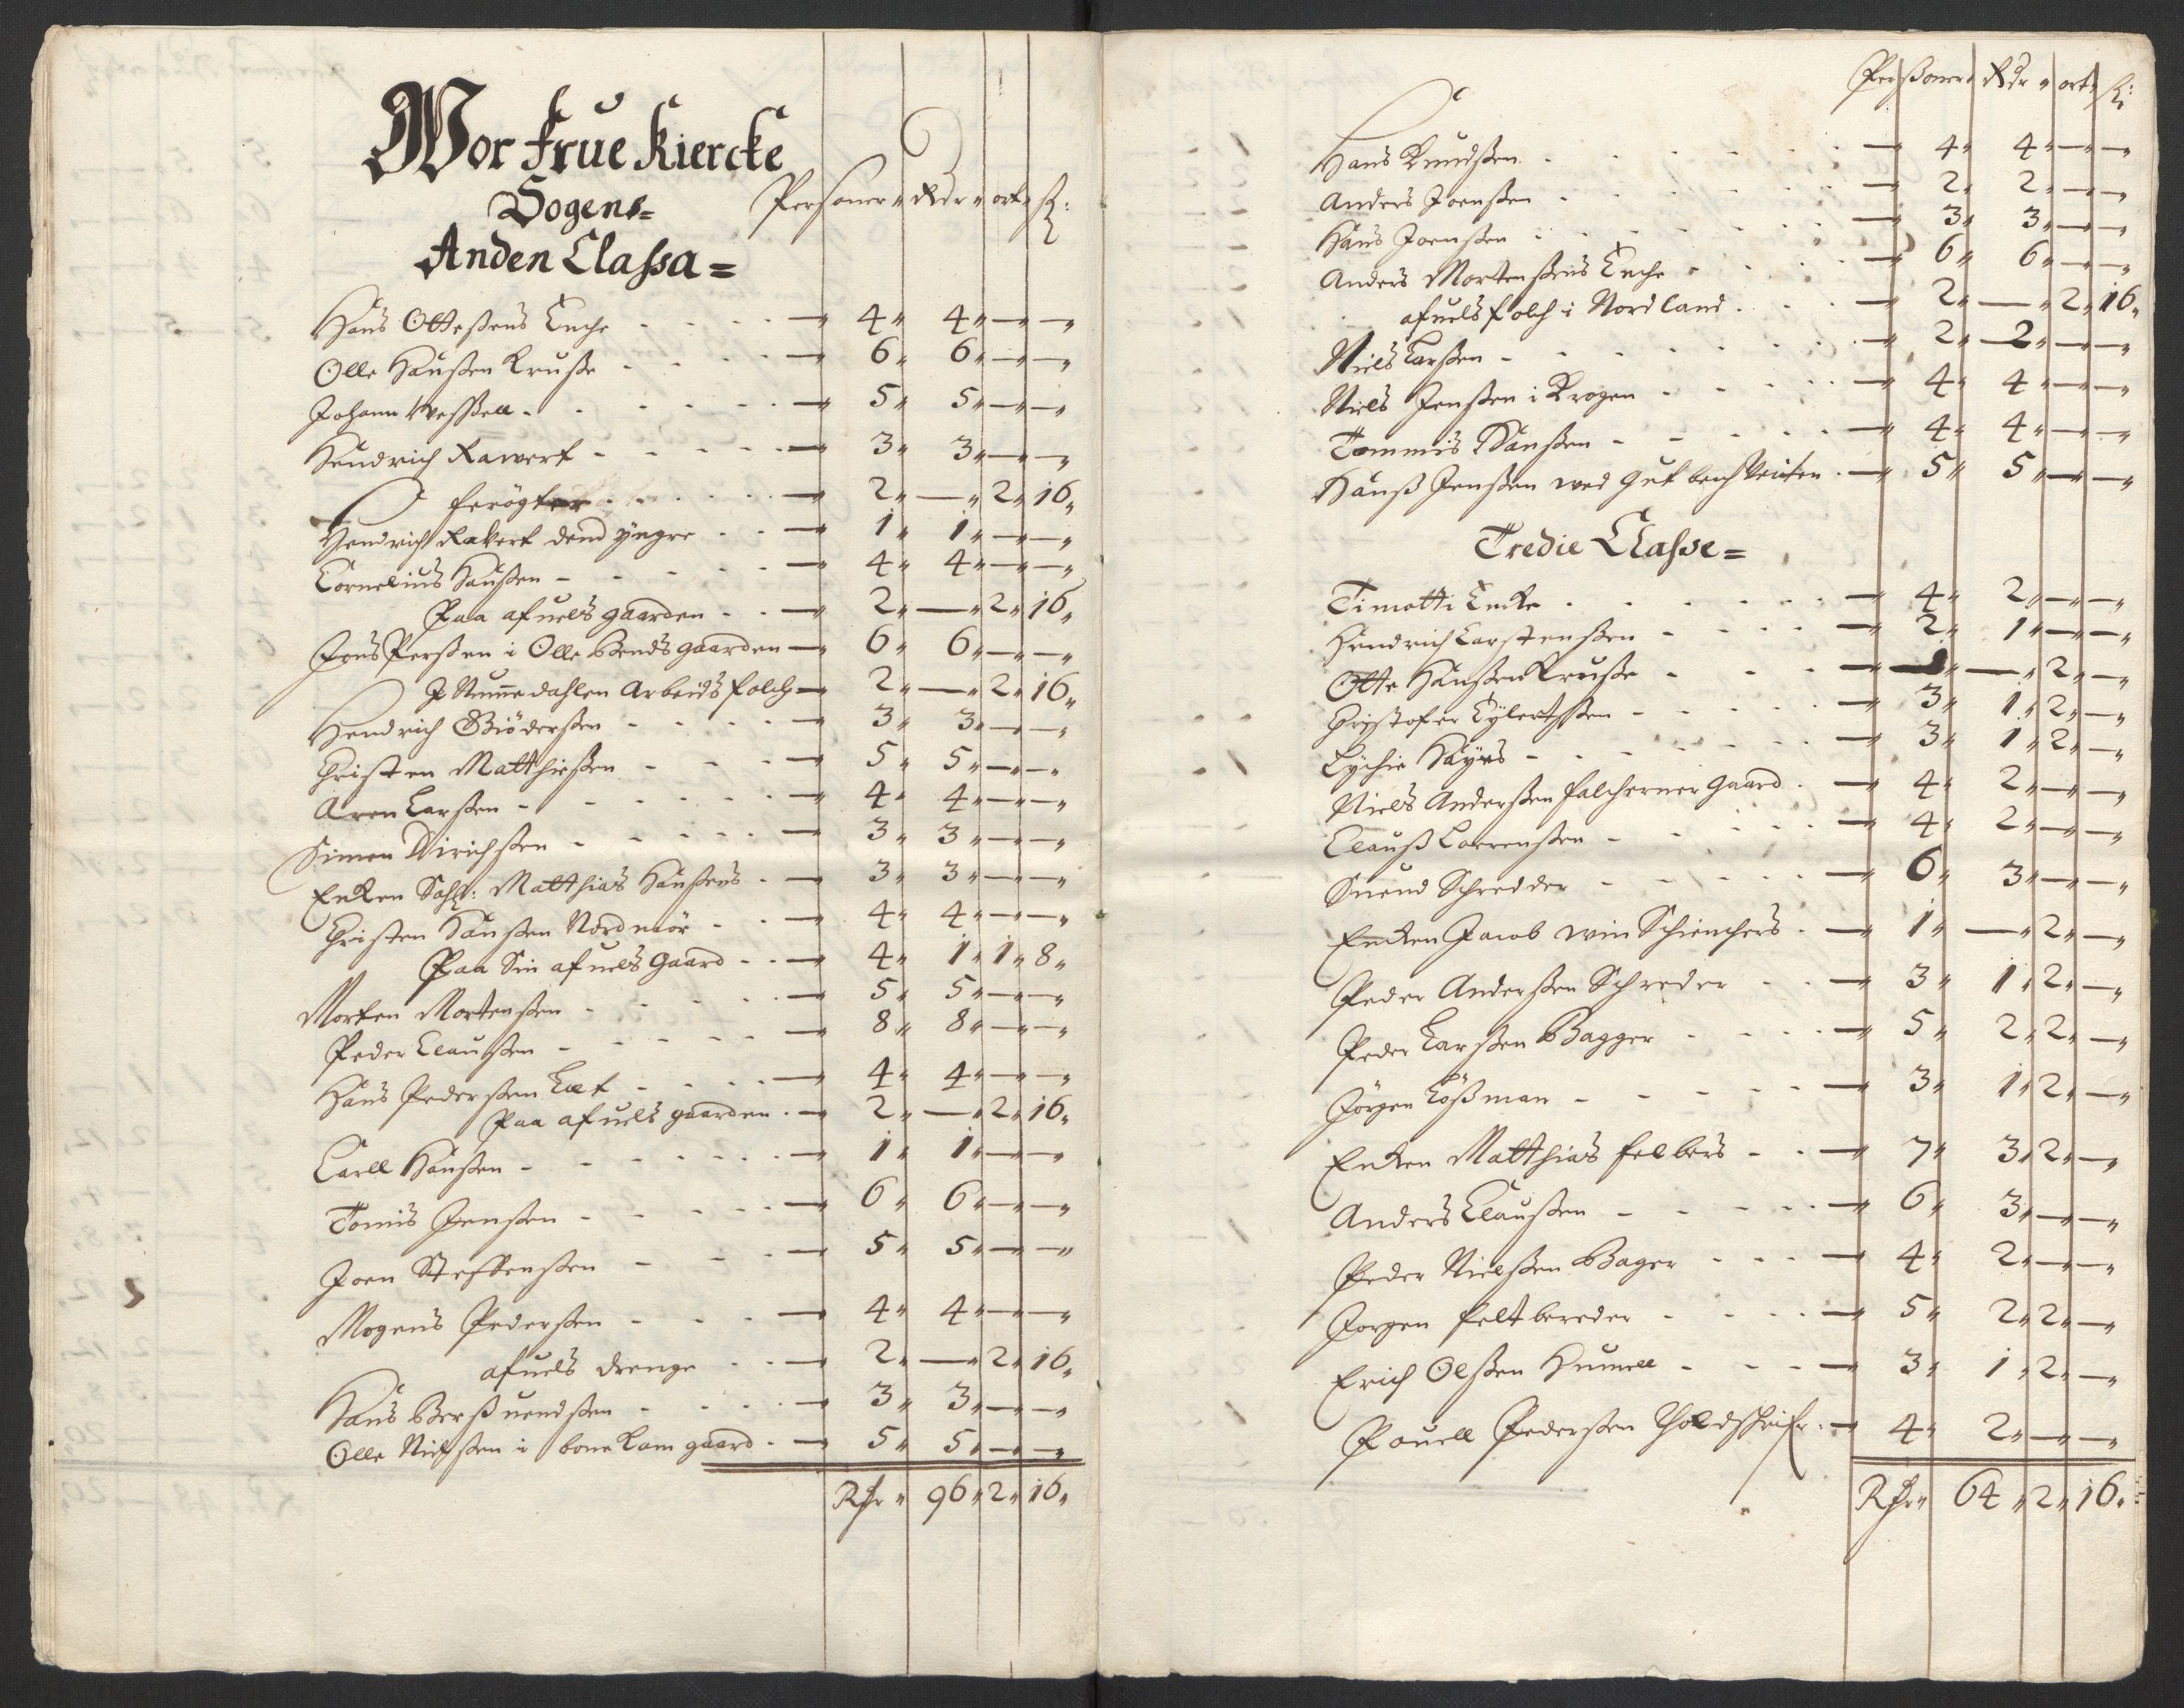 Wor Frue Kiercke
Sogens=
Anden Classa=
Personer " Rdr " ort " ß:
Hans Ottesens Enche - - - — 4 " 4 " — " — "
Olle Hansen Kruse - - - — 6 " 6 " — " — "
Johann Wessell - - - — 5 " 5 " — " — "
Hendrich Rawert - - - — 3 " 3 " — " — "
- - - — 2 " — " 2 " 16 "
Hendrich Rawert dend yngre - - — 1 " 1 " — " — "
Cornelius Hansen - - - — 4 " 4 " — " — "
Paa afuels gaarden - - — 2 " — " 2 " 16 "
Jens Persen i Olle Bends gaarden — 6 " 6 " — " — "
I Nummedahlen Arbeids folch — 2 " — " 2 " 16 "
Hendrich Giødersen - - - — 3 " 3 " — " — "
Christen Matthiesen - - - — 5 " 5 " — " — "
Aren Larsen - - - — 4 " 4 " — " — "
Simen Dirichsen - - - — 3 " 3 " — " — "
Encken Sahl: Matthias Hansens - — 3 " 3 " — " — "
Christen Hansen Nordmør - - — 4 " 4 " — " — "
Paa Sin afuels Gaard - - — 4 " 1 " 1 " 8 "
Morten Mortensen - - - — 5 " 5 " — " — "
Peder Clausen - - - — 8 " 8 " — " — "
Hans Pedersen - - - — 4 " 4 " — " — "
Paa afuels gaarden - — 2 " — " 2 " 16 "
Carll Hansen - - - — 1 " 1 " — " — "
Tomis Jensen - - - — 6 " 6 " — " — "
Joen Steffensen - - - — 5 " 5 " — " — "
Mogens Pedersen - - - — 4 " 4 " — " — "
afuels drenge - - — 2 " — " 2 " 16 "
Hans - - - — 3 " 3 " — " — "
Olle Nielsen i gaard - — 5 " 5 " — " — "
Rdr " 96 " 2 " 16 "
Personer " Rdr " ort " ß:
Hans Knudsen - - - — 4 " 4 " — " — "
Anders Joensen - - - — 2 " 2 " — " — "
Hans Joensen - - - — 3 " 3 " — " — "
Anders Mortensens Enche - - — 6 " 6 " — " — "
afuels folch i Nordland - - — 2 " — " 2 " 16 "
Niels Larsen - - - — 2 " 2 " — " — "
Niels Jensen i Krogen - - - — 4 " 4 " — " — "
Tommis Hansen - - - — 4 " 4 " — " — "
Hanß Jensen wed - — 5 " 5 " — " — "
Tredie Classe=
Timotti - - - — 4 " 2 " — " — "
Hendrich Carstensen - - - — 2 " 1 " — " — "
Otte Hansen Kruse - - - — 1 " — " 2 " — "
Christofer Eylertsen - - - — 3 " 1 " 2 " — "
- - - — 3 " 1 " 2 " — "
Niels Andersen Gaard - — 4 " 2 " — " — "
Clauß Lorensen - - - — 4 " 2 " — " — "
Suend Schredder - - - — 6 " 3 " — " — "
Encken Jacob - — 1 " — " 2 " — "
Peder Andersen Schreder - - — 3 " 1 " 2 " — "
Peder Larsen Bagger - - - — 5 " 2 " 2 " — "
Jørgen - - - — 3 " 1 " 2 " — "
Encken Matthias Felbers - - — 7 " 3 " 2 " — "
Anders Clausen - - - — 6 " 3 " — " — "
Peder Nielsen Bager - - - — 4 " 2 " — " — "
Jørgen Feltbereder - - - — 5 " 2 " 2 " — "
Erich Olsen - - - — 3 " 1 " 2 " — "
Pouell Pedersen - — 4 " 2 " — " — "
Rdr " 64 " 2 " 16 "